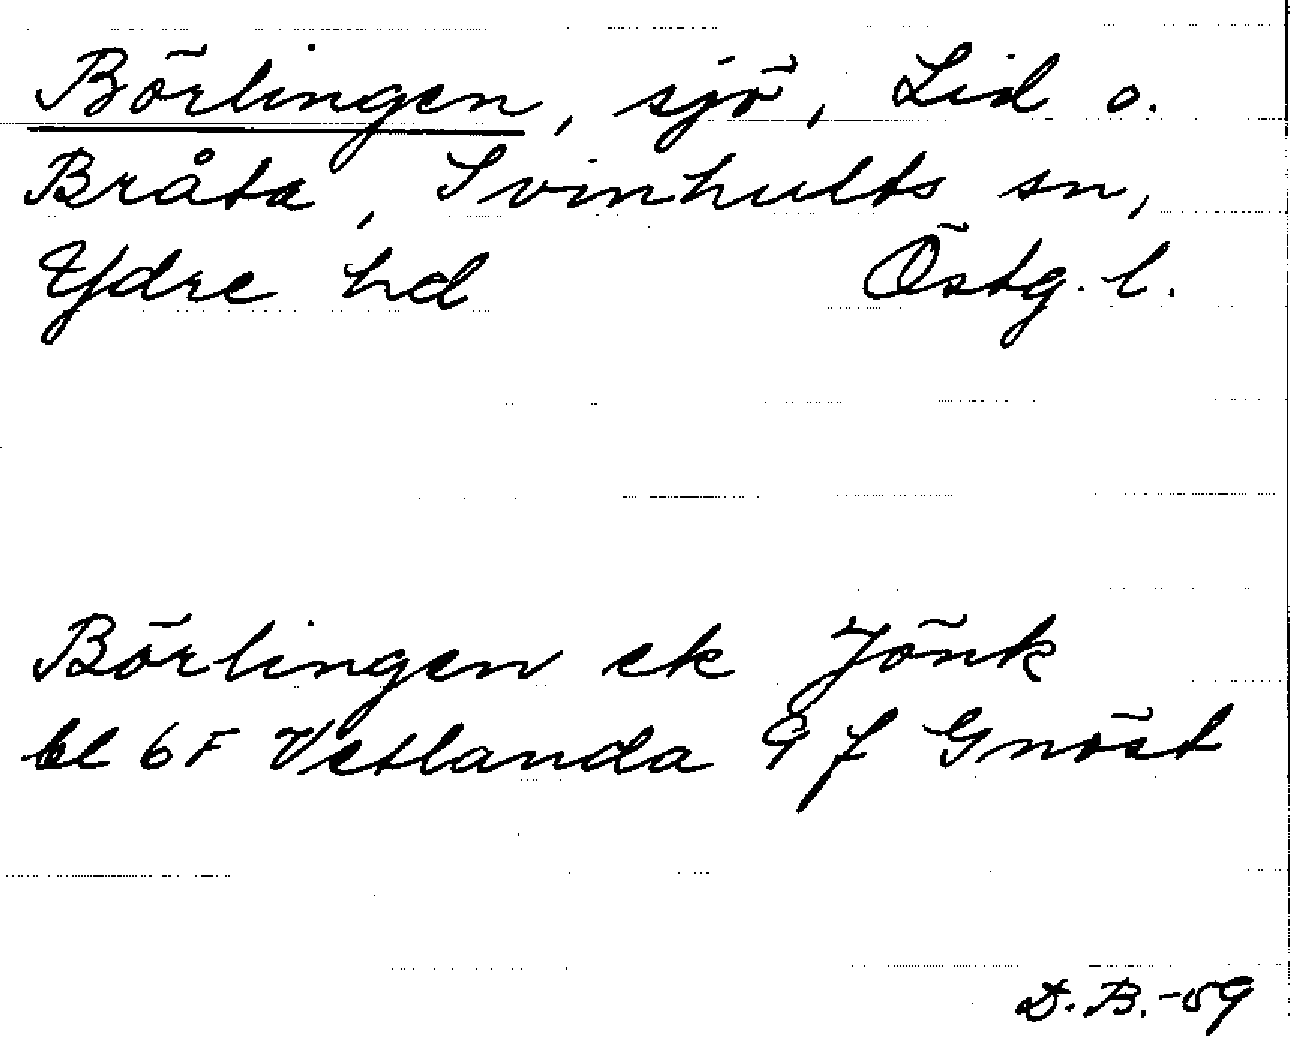 Börlingen, sjö, Lid o.
Bråta, Svinhults sn,
Ydre hd Östg. l.
Börlingen ek Jönk
bl 6F Vetlanda 9 f Gnöst
D.B.-59